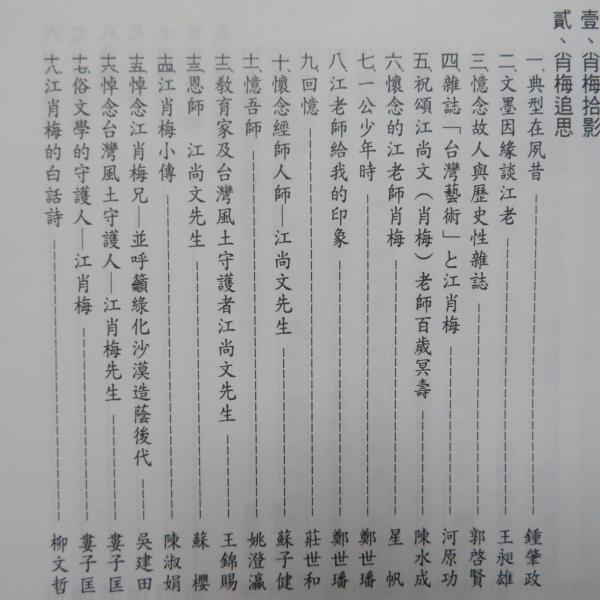 壹、肖梅拾影
貳、肖梅追思
一、典型在夙昔 鍾肇政
二、文墨因緣談江老 王昶雄
三、憶念故人與歷史性雜誌 郭啓賢
四、雜誌「台灣藝術」と江肖梅 河原功
五、祝頌江尚文（肖梅）老師百歲冥壽 陳水成
六、懷念的江老師肖梅 星帆
七、一公少年時 鄭世璠
八、江老師給我的印象 鄭世璠
九、回憶 莊世和
十、懷念經師人師—江尚文先生 蘇子健
十一、憶吾師 姚澄瀛
十二、教育家及台灣風土守護者江尚文先生 王錦賜
十三、恩師 江尚文先生 蘇櫻
十四、江肖梅小傳 陳淑娟
十五、悼念江肖梅兄—並呼籲綠化沙漠造蔭後代 吳建田
十六、悼念台灣風土守護人—江肖梅先生 婁子匡
十七、俗文學的守護人—江肖梅 婁子匡
十八、江肖梅的白話詩 柳文哲